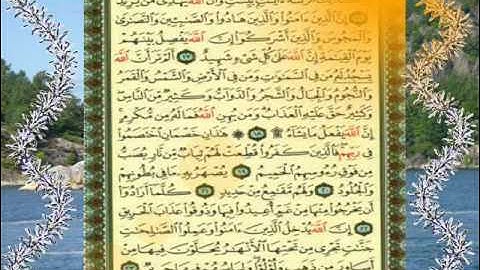 وَكَذَٰلِكَ أَنزَلْنَٰهُ ءَايَٰتٍۭ بَيِّنَٰتٍ وَأَنَّ ٱللَّهَ يَهْدِى مَن يُرِيدُ
۝١٦ إِنَّ ٱلَّذِينَ ءَامَنُوا۟ وَٱلَّذِينَ هَادُوا۟ وَٱلصَّٰبِـِٔينَ وَٱلنَّصَٰرَىٰ
وَٱلْمَجُوسَ وَٱلَّذِينَ أَشْرَكُوٓا۟ إِنَّ ٱللَّهَ يَفْصِلُ بَيْنَهُمْ
يَوْمَ ٱلْقِيَٰمَةِ إِنَّ ٱللَّهَ عَلَىٰ كُلِّ شَىْءٍ شَهِيدٌ ۝١٧ أَلَمْ تَرَ أَنَّ ٱللَّهَ
يَسْجُدُ لَهُۥ مَن فِى ٱلسَّمَٰوَٰتِ وَمَن فِى ٱلْأَرْضِ وَٱلشَّمْسُ وَٱلْقَمَرُ
وَٱلنُّجُومُ وَٱلْجِبَالُ وَٱلشَّجَرُ وَٱلدَّوَآبُّ وَكَثِيرٌ مِّنَ ٱلنَّاسِ
وَكَثِيرٌ حَقَّ عَلَيْهِ ٱلْعَذَابُ وَمَن يُهِنِ ٱللَّهُ فَمَا لَهُۥ مِن مُّكْرِمٍ
إِنَّ ٱللَّهَ يَفْعَلُ مَا يَشَآءُ ۝١٨ هَٰذَانِ خَصْمَانِ ٱخْتَصَمُوا۟
فِى رَبِّهِمْ فَٱلَّذِينَ كَفَرُوا۟ قُطِّعَتْ لَهُمْ ثِيَابٌ مِّن نَّارٍ يُصَبُّ
مِن فَوْقِ رُءُوسِهِمُ ٱلْحَمِيمُ ۝١٩ يُصْهَرُ بِهِۦ مَا فِى بُطُونِهِمْ
وَٱلْجُلُودُ ۝٢٠ وَلَهُم مَّقَٰمِعُ مِنْ حَدِيدٍ ۝٢١ كُلَّمَآ أَرَادُوٓا۟
أَن يَخْرُجُوا۟ مِنْهَا مِنْ غَمٍّ أُعِيدُوا۟ فِيهَا وَذُوقُوا۟ عَذَابَ ٱلْحَرِيقِ
۝٢٢ إِنَّ ٱللَّهَ يُدْخِلُ ٱلَّذِينَ ءَامَنُوا۟ وَعَمِلُوا۟ ٱلصَّٰلِحَٰتِ
جَنَّٰتٍ تَجْرِى مِن تَحْتِهَا ٱلْأَنْهَٰرُ يُحَلَّوْنَ فِيهَا مِنْ
أَسَاوِرَ مِن ذَهَبٍ وَلُؤْلُؤًا وَلِبَاسُهُمْ فِيهَا حَرِيرٌ